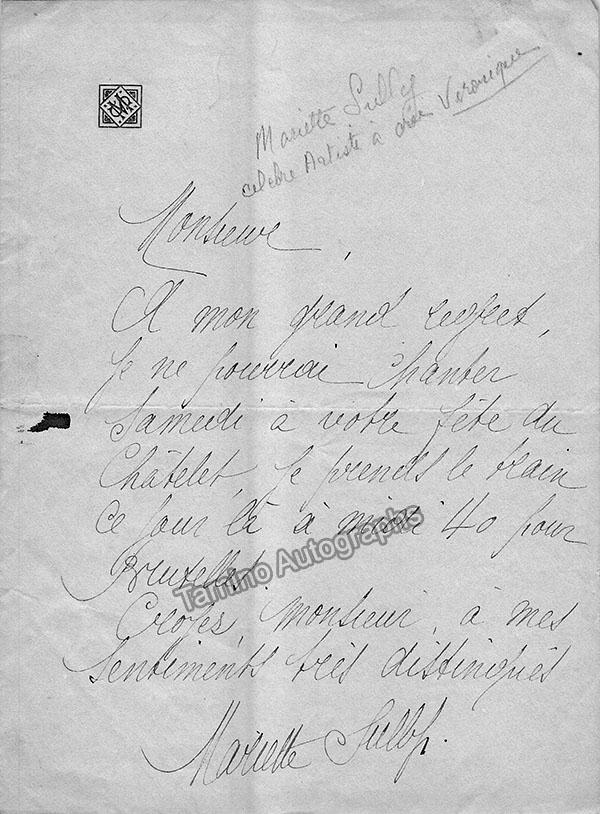 Mariette Sully
célèbre Artiste à créé Véronique
Monsieur,
A mon grand regret,
je ne pourrai chanter
Samedi à votre fête du
Châtelet, je prends le train
ce jour là à midi 40 pour
Bruxelles.
Croyez, monsieur, à mes
sentiments très distingués
Mariette Sully.
Tamino Autographs